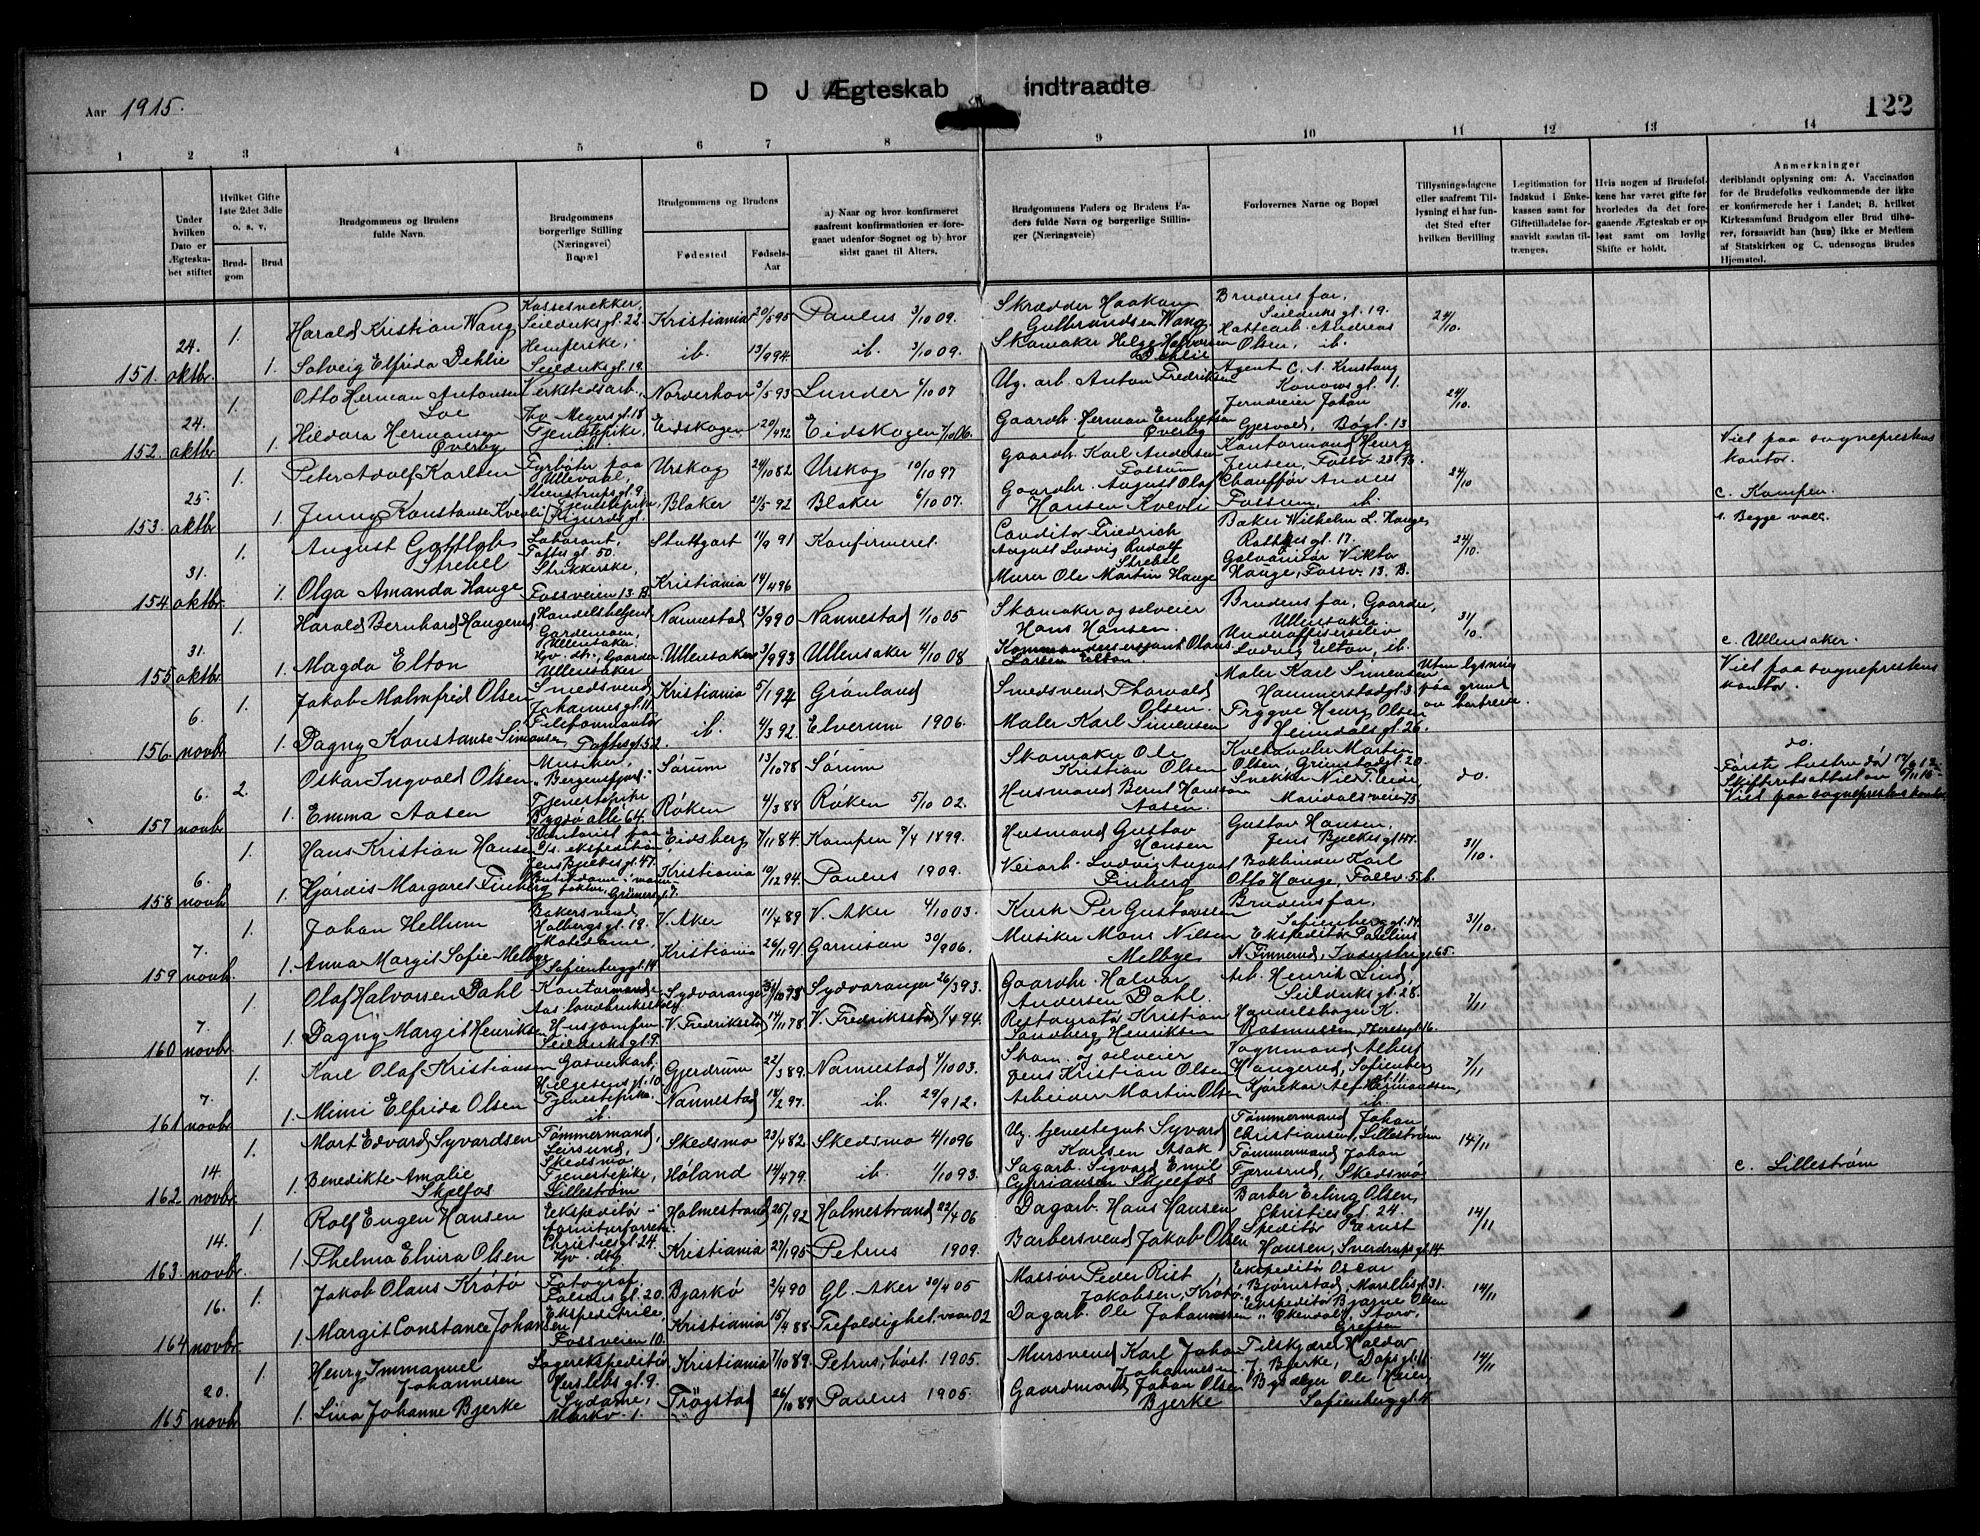 D J Ægteskab indtraadte
Aar 1915.
122
1 2 3 4 5 6 7 8 9 10 11 12 13 14
Under hvilken Dato er Ægteskabet stiftet
Hvilket Gifte 1ste 2det 3die o. s. v,
Brudgom
Brud
Brudgommens og Brudens fulde Navn.
Brudgommens borgerlige Stilling (Næringsvei) Bopæl
Brudgommens og Brudens
Fødested
Fødsels-Aar
a) Naar og hvor konfirmeret saafremt konfirmationen er foregaaet udenfor Sognet og b) hvor sidst gaaet til Alters.
Brudgommens Faders og Brudens Faders fulde Navn og borgerlige Stillinger (Næringsveie)
Forlovernes Navne og Bopæl
Tillysningsdagene eller saafremt Tillysning ei har fundet Sted efter hvilken Bevilling
Legitimation for Indskud i Enkekassen samt for Giftetilladelse forsaavidt saadan tiltrænges.
Hvis nogen af Brudefolkene har været gifte før hvorledes da det foregaaende Ægteskab er opløst samt om lovlig Skifte er holdt.
Anmerkninger deriblandt oplysning om: A. Vaccination for de Brudefolks vedkommende der ikke er konfirmerede her i Landet; B. hvilket Kirkesamfund Brudgom eller Brud tilhører, forsaavidt han (hun) ikke er Medlem af Statskirken og C. udensogns Brudes Hjemsted.
151. 24. oktbr.
1. Harald Kristian Wang Seilduksgt. 22. Kristiania 20/5 95 Paulus 3/10 09. Skrædder Haakon Gulbrandsen Wang. Brudens far, Seilduksgt. 19. 24/10.
1. Solveig Elfrida Dehlie Seilduksgt. 19. ib. 13/9 94. ib. 3/10 09. Skomaker Helge Halvorsen Dehlie Andreas Olsen, ib.
152. 24. oktbr
1. Otto Herman Antonsen Loe Verkstedsarb., Thv. Meyersgt. 18 Norderhov 3/5 93 Lunder /10 07 Ug. arb. Anton Fredriksen Agent C. A. Konowsgt. 1. 24/10.
1. Hildora Hermansen Øverby Tjenestepike, ib. Eidskogen 20/4 92 Eidskogen /10 06. Gaardbr. Herman Øverby Johan Gjervold, Bøgt. 13
153. 25. oktbr
1. Peter Adolf Karlsen Fyrbøter paa Ullevaal, Stenstrupsgt. 9. Urskog 24/10 82 Urskog 10/10 97 Gaardbr. Karl Andersen Fossum Kontormand Henry Jensen, Fossv. 23 B. 24/10 Viet paa sogneprestens kontor.
1. Jenny Konstanse Kvevli Tjenestepike, Blaker 21/5 92 Blaker 6/10 07. Gaardbr. August Olaf Hansen Kvevli Chauffør Anders Fossum, ib. c. Kampen.
154. 31. oktbr.
1. August Gottlob Strebel Laborant, Toftesgt. 50. Stuttgart 11/9 91 Konfirmeret. Conditor Friedrich August Ludvig Rudolf Strebel Baker Wilhelm L. Hauge, gt. 17. 24/10. Begge vacc.
1. Olga Amanda Hauge Strikkerske, Fossveien 13 B. Kristiania 14/4 96 Murer Ole Martin Hauge Galvanisør Viktor Hauge, Fossv. 13. B.
155. 31. oktbr.
1. Harald Bernhard Haugerud Handelsbetjent Gardemoen, Ullensaker. Nannestad 13/9 90 Nannestad 1/10 05 Skomaker og selveier Hans Hansen. Brudens far, Ullensaker. 31/10.
1. Magda Elton Ullensaker Ullensaker 3/9 93 Ullensaker 4/10 08 Kommandersersjant Olaus Larsen Elton. Ludvig Elton, ib. c. Ullensaker.
156. 6. novbr.
1. Jakob Malmfrid Olsen Smedsvend, Johannesgt. 11. Kristiania 5/1 92 Grønland Smedsvend Thorvald Olsen. Maler Karl Simensen Hammerstadgt. 3 Uten lysning paa grund av bortreise. Viet paa sogneprestens kontor.
1. Dagny Konstanse Simonsen Toftesgt. 52. ib. 4/3 92 Elverum 1906. Maler Karl Simensen Trygve Henry Olsen Heimdalsgt. 26.
157. 6. novbr.
2. Oskar Ingvald Olsen Musiker, "Bergensfjord". Sørum 13/10 78 Sørum Skomaker Ole Kristian Olsen Martin Olsen, Grimstadgt. 20. do. do. Første hustru død 17/9 12.
1. Emma Aasen Tjenestepike Bygdø allé 64. Røken 4/3 88 Røken 5/10 02. Husmand Bernt Hansson Aasen. Snekker Mandalsveien 75 Viet paa sogneprestens kontor
158. 6. novbr.
1. Hans Kristian Hansen Kontorist paa Jens Bjelkesgt. 47. Eidsberg 7/11 84. Kampen 7/4 1899. Husmand Gustav Hansen Gustav Hansen, Jens Bjelkesgt. 47. 31/10.
1. Hjørdis Margaret Finberg Kristiania 10/12 94. Paulus 1909. Veiarb. Ludvig August Finberg Bokbinder Karl Otto Hauge, Fossv. 5. b.
159. 7. novbr.
1. Johan Hellum Bakersvend, Holbergsgt. 19. V. Aker 11/4 89 V. Aker 4/10 03. Kusk Per Gustavsen Brudens far, Sofienberggt. 14. 31/10.
1. Anna Margit Sofie Melbye Sofienberggt. 14 Kristiania 26/11 91 Garnison 30/9 06. Musiker Mons Nilsen Melbye Ekspeditør Paulius N. Finnerud, 65.
160. 7. novbr.
1. Olaf Halvorsen Dahl Kontormand, Aas landbrukshøi Sydvaranger Sydvaranger 26/3 93. Gaardbr. Halvar Andersen Dahl. Arb. Henrik Lind, Seilduksgt. 28. 7/11
1. Dagny Margit Henriksen Husjomfru Seilduksgt. 9. V. Fredrikstad 14/11 78 V. Fredriksstad 1/4 94. Restauratør Kristian Sandberg Henriksen K. Rasmussen, 16.
161. 7. novbr.
1. Karl Olaf Kristiansen Gasverkarb., Helgesensgt. 10 Gjerdrum 22/3 89. Nannestad 4/10 03. Skom. og selveier Jens Kristian Olsen Vognmand Albert Haugerud, Sofienberg 7/11
1. Mimi Elfrida Olsen Tjenestepike. ib. Nannestad 14/2 97. ib. 29/9 12. Arbeider Martin Olsen Kjørekar Hermandsen, ib.
162. 14. novbr.
1. Mort Edvard Syvardsen Tømmermand, Leirsund, Skedsmo. Skedsmo 23/4 82. Skedsmo 4/10 96 Ug. tjenestegut Syvard Karlsen Asak Tømmermand Johan Christiansen, Lillestrøm 14/11
1. Benedikte Amalie Skjelfos Tjenestepike, Lillestrøm Høland 14/4 79. ib. 1/10 93. Sagarb. Sigvard Emil Cyprianssen Skjelfos Tømmermand Johan Tærnsrud, Skedsmo. c. Lillestrøm
163. 14. novbr.
1. Rolf Eugen Hansen Ekspeditør, Christiesgt. 24. Holmestrand 25/1 92 Holmestrand 22/4 06 Dagarb. Hans Hansen Barber Erling Olsen, Christiesgt. 24. 14/11
1. Thelma Elvira Olsen ib. Kristiania 23/1 95 Petrus 1909. Barbersvend Jakob Olsen Speditør Ernst Hansen, Sverdrupsgt. 14
164. 16. novbr.
1. Jakob Olaus Krotø Fotograf, Falsensgt. 20. Bjarkø 2/4 90 Gl. Aker 30/4 05 Massør Peder Rist Jakobsen, Krotø. Ekspeditør Oscar Bjørnstad, gt. 31. 14/11
1. Margit Constance Johansen Ekspeditrice, Fossveien 10. Kristiania 15/4 88 Trefoldighet. vaar 02 Dagarb. Ole Johannessen Ekspeditør Bjarne Olsen Storo, Grefsen
165. 20. novbr.
1. Henry Immanuel Johannesen Lagerekspeditør Herslebsgt. 9. Kristiania 7/10 89. Petrus, høst. 1905. Mursvend Karl Johan Johannesen Haldor J. Bjerke, Dopsgt. 11. 14/11
1. Lina Johanne Bjerke Sydame, Markv. 1. Trøgstad 26/10 89 Paulus 1905. Gaardmand Johan Olsen Bjerke Ole Heier Sofienberggt.